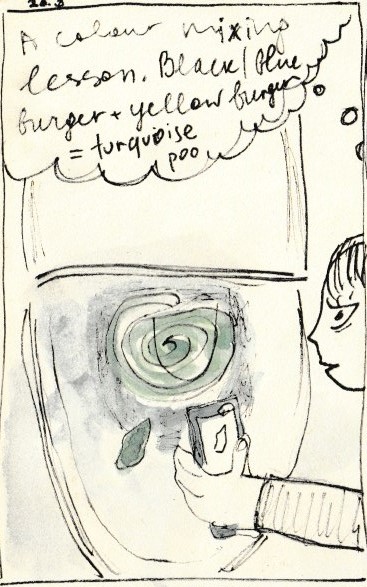 A colour mixing
lesson. Black/blue
burger + yellow burger
= turquoise
poo